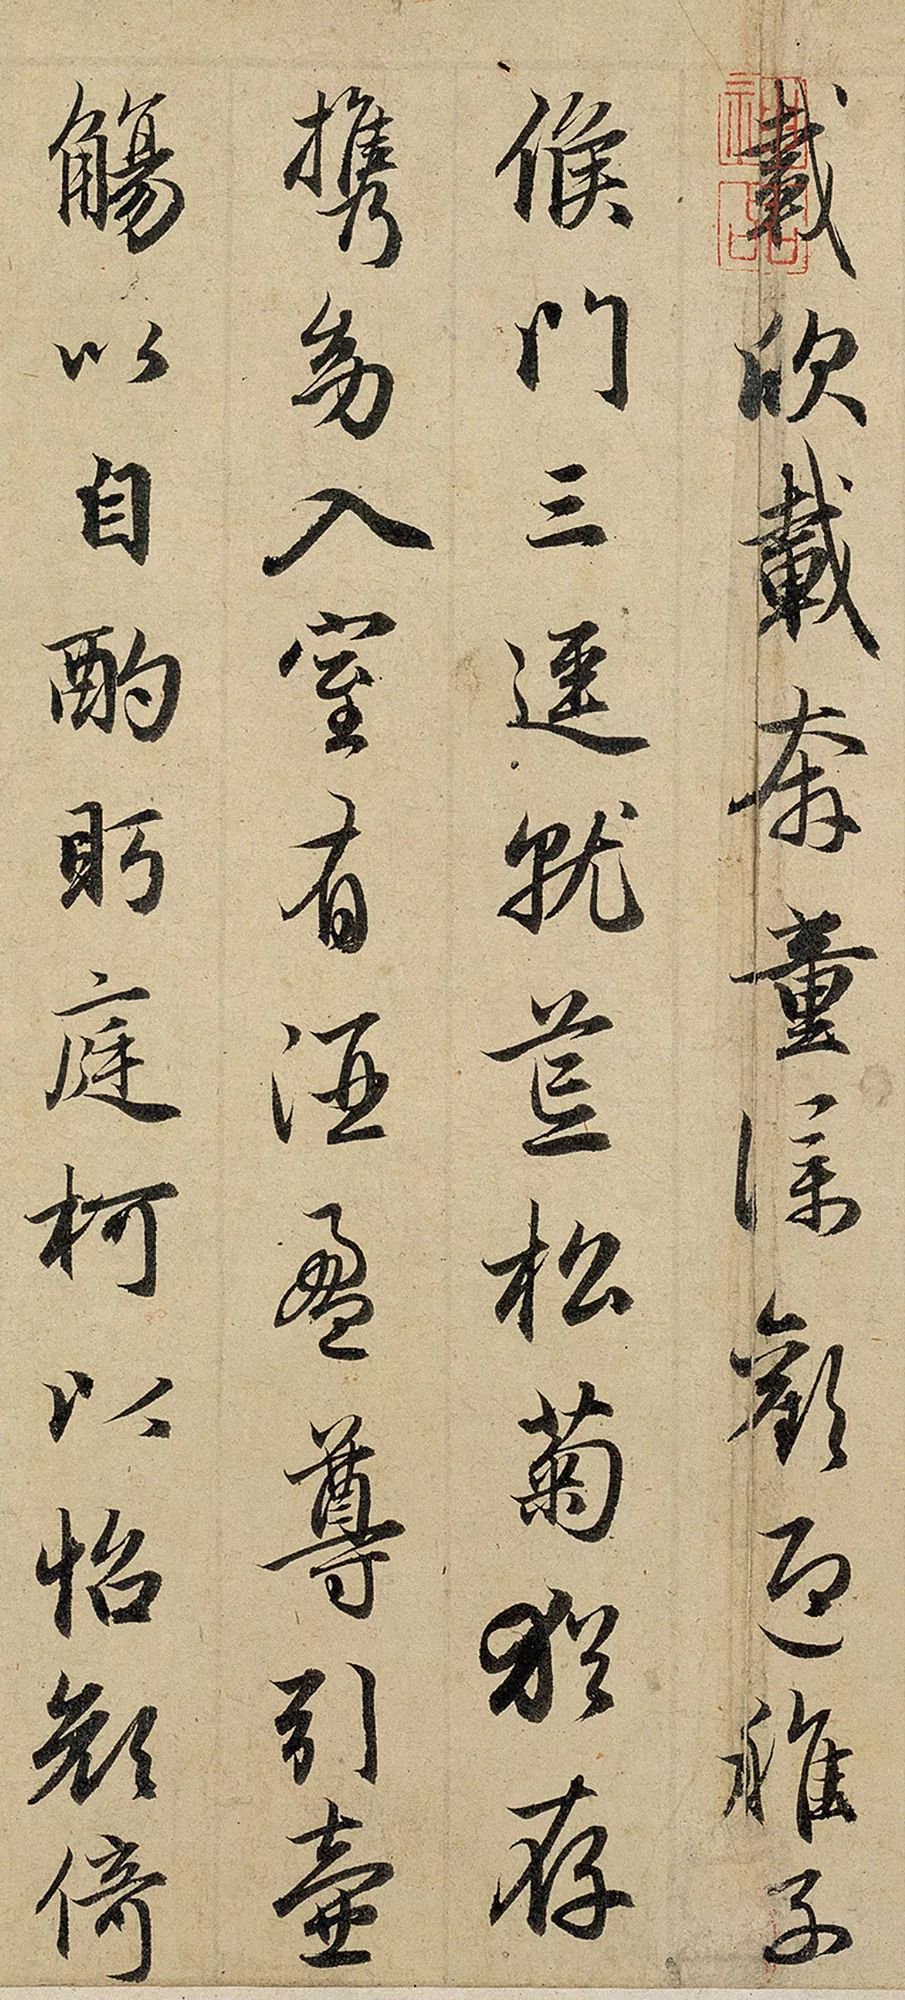 載欣載奔童僕歡迎稚子
候門三逕就荒松菊猶存
攜幼入室有酒盈尊引壺
觴以自酌眄庭柯以怡顏倚